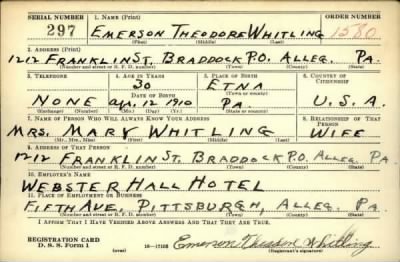 SERIAL NUMBER 1. NAME (Print) ORDER NUMBER
297 EMERSON THEODORE WHITLING 1580
(First) (Middle) (Last)
2. ADDRESS (Print)
1212 FRANKLIN ST. BRADDOCK P.O. ALLEG. PA.
(Number and street or R. F. D. number) (Town) (County) (State)
3. TELEPHONE 4. AGE IN YEARS 5. PLACE OF BIRTH 6. COUNTRY OF CITIZENSHIP
30 ETNA
DATE OF BIRTH (Town or county)
NONE Ap. 12, 1910 PA. U.S.A.
(Exchange) (Number) (Mo.) (Day) (Yr.) (State or country)
7. NAME OF PERSON WHO WILL ALWAYS KNOW YOUR ADDRESS 8. RELATIONSHIP OF THAT PERSON
MRS. MARY WHITLING WIFE
(Mr., Mrs., Miss) (First) (Middle) (Last)
9. ADDRESS OF THAT PERSON
1212 FRANKLIN ST. BRADDOCK P.O. ALLEG. PA
(Number and street or R. F. D. number) (Town) (County) (State)
10. EMPLOYER'S NAME
WEBSTER HALL HOTEL
11. PLACE OF EMPLOYMENT OR BUSINESS
FIFTH AVE, PITTSBURGH, ALLEG. PA.
(Number and street or R. F. D. number) (Town) (County) (State)
I AFFIRM THAT I HAVE VERIFIED ABOVE ANSWERS AND THAT THEY ARE TRUE.
REGISTRATION CARD
D. S. S. Form 1 (over) 16—17105 Emerson Theodore Whitling
(Registrant's signature)